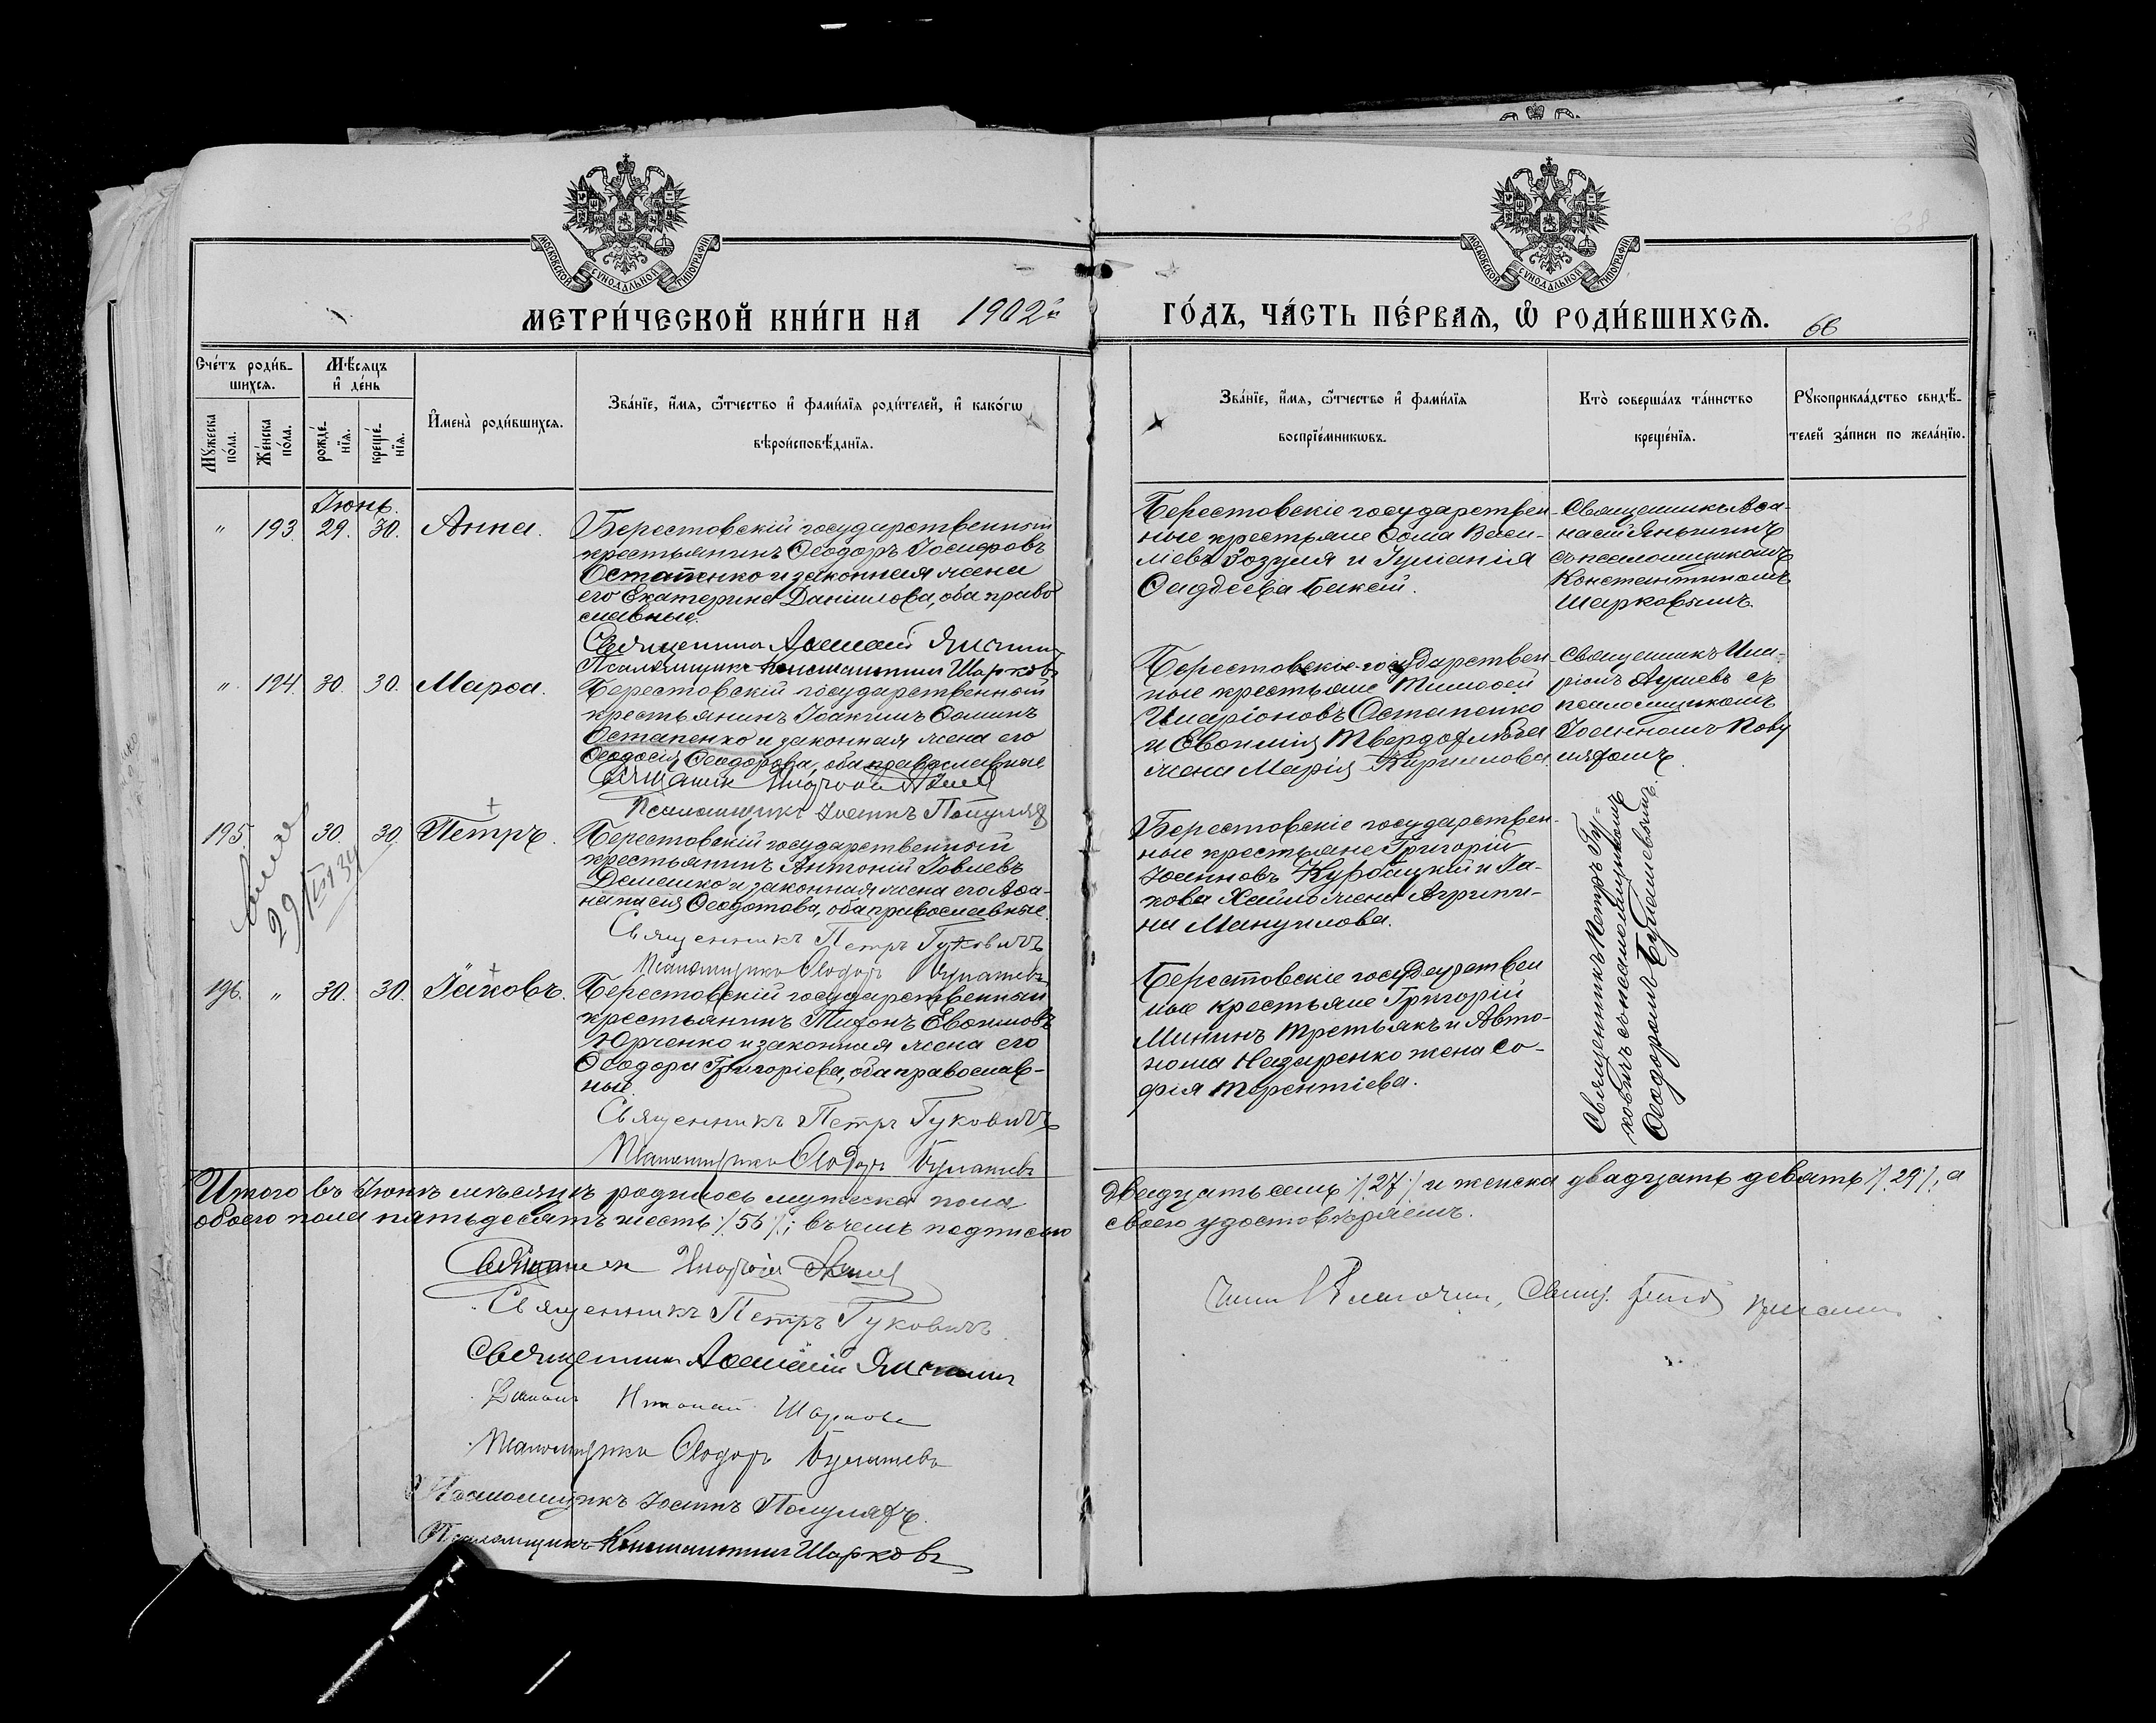 МОСКОВСКОЙ СѴНОДАЛЬНОЙ ТИПОГРАФІИ
МОСКОВСКОЙ СѴНОДАЛЬНОЙ ТИПОГРАФІИ
МЕТРИ́ЧЕСКОЙ КНИ́ГИ НА 1902й
ГО́ДЪ, ЧА́СТЬ ПЕ́РВАЯ, Ѡ҆ РОДИ́ВШИХСЯ. 66
Сче́тъ роди́в-
шихся.
Мѣ́сяцъ
и҆ де́нь
Мꙋ́жеска
по́ла.
Же́нска
по́ла.
рожде́-
нїя.
креще́-
нїя.
И҆мена̀ роди́вшихся.
Зва́нїе, и҆́мя, ѻ҆́тчество и҆ фами́лїя роди́телей, и҆ како́гѡ
вѣроисповѣ́данїя.
Зва́нїе, и҆́мя, ѻ҆́тчество и҆ фами́лїя
воспрїе́мникѡвъ.
Кто̀ соверша́лъ та́инство
креще́нїя.
Рꙋкоприкла́дство свидѣ́-
телей за́писи по жела́нїю.
Іюнь.
" 193. 29. 30. Анна.
Берестовскій государственный
крестьянинъ Ѳеодоръ Іосифовъ
Остапенко и законная жена
его Екатерина Даніилова, оба право
славные.
Священникъ Аѳанасій
Псаломщикъ Константинъ Шарковъ
Берестовскіе государствен-
ные крестьяне Ѳома Васи-
ліевъ Зозуля и Іуліанія
Ѳаддеева Бакай.
Священникъ Аѳа-
насій
съ псаломщикомъ
Константиномъ
Шарковымъ.
" 194. 30. 30. Марѳа.
Берестовскій государственный
крестьянинъ Іоакимъ Ѳоминъ
Остапенко и законная жена его
Ѳеодосія Ѳеодорова, оба православные
Священникъ
Псаломщикъ Іоаннъ
Берестовскіе государствен-
ные крестьяне Тимоѳей
Иларіоновъ Остапенко
и Евѳимія Твердохлѣба
жена Марія Кириллова
Священникъ Ила-
ріонъ съ
псаломщикомъ
Іоанномъ
195. 30. 30. Петръ.
29/III 34
Берестовскій государственный
крестьянинъ Антоній Іовлевъ
Демешко и законная жена его Аѳа-
насія Ѳеодотова, оба православные.
Священникъ Петръ Гуковичъ
Псаломщикъ Ѳеодоръ Булашевъ
Берестовскіе государствен-
ные крестьяне Григорій
Іоанновъ Курбацкій и Іа-
кова жена Агрипи-
на Мануилова.
Священникъ Петръ Гу-
ковичъ съ псаломщикомъ
Ѳеодоромъ Булашевымъ.
196. " 30. 30. Іаковъ.
Берестовскій государственный
крестьянинъ Тихонъ Евѳимовъ
Юрченко и законная жена его
Ѳеодора Григоріева, оба православ-
ные.
Священникъ Петръ Гуковичъ
Псаломщикъ Ѳеодоръ Булашевъ
Берестовскіе государствен
ные крестьяне Григорій
Мининъ Третьякъ и Авто-
нома Назаренко жена Со-
фія Терентіева.
Итого въ Іюнѣ мѣсяцѣ родилось мужеска пола
двадцать семь /27/ и женска двадцать девять /29/, а
обоего пола пятьдесятъ шесть /56/; въ чемъ подписью
своею удостовѣряемъ.
Священникъ
Священникъ Петръ Гуковичъ
Священникъ Аѳанасій
Шаркова
Псаломщикъ Ѳеодоръ Булашевъ
Псаломщикъ Іоаннъ
Псаломщикъ Константинъ Шарковъ